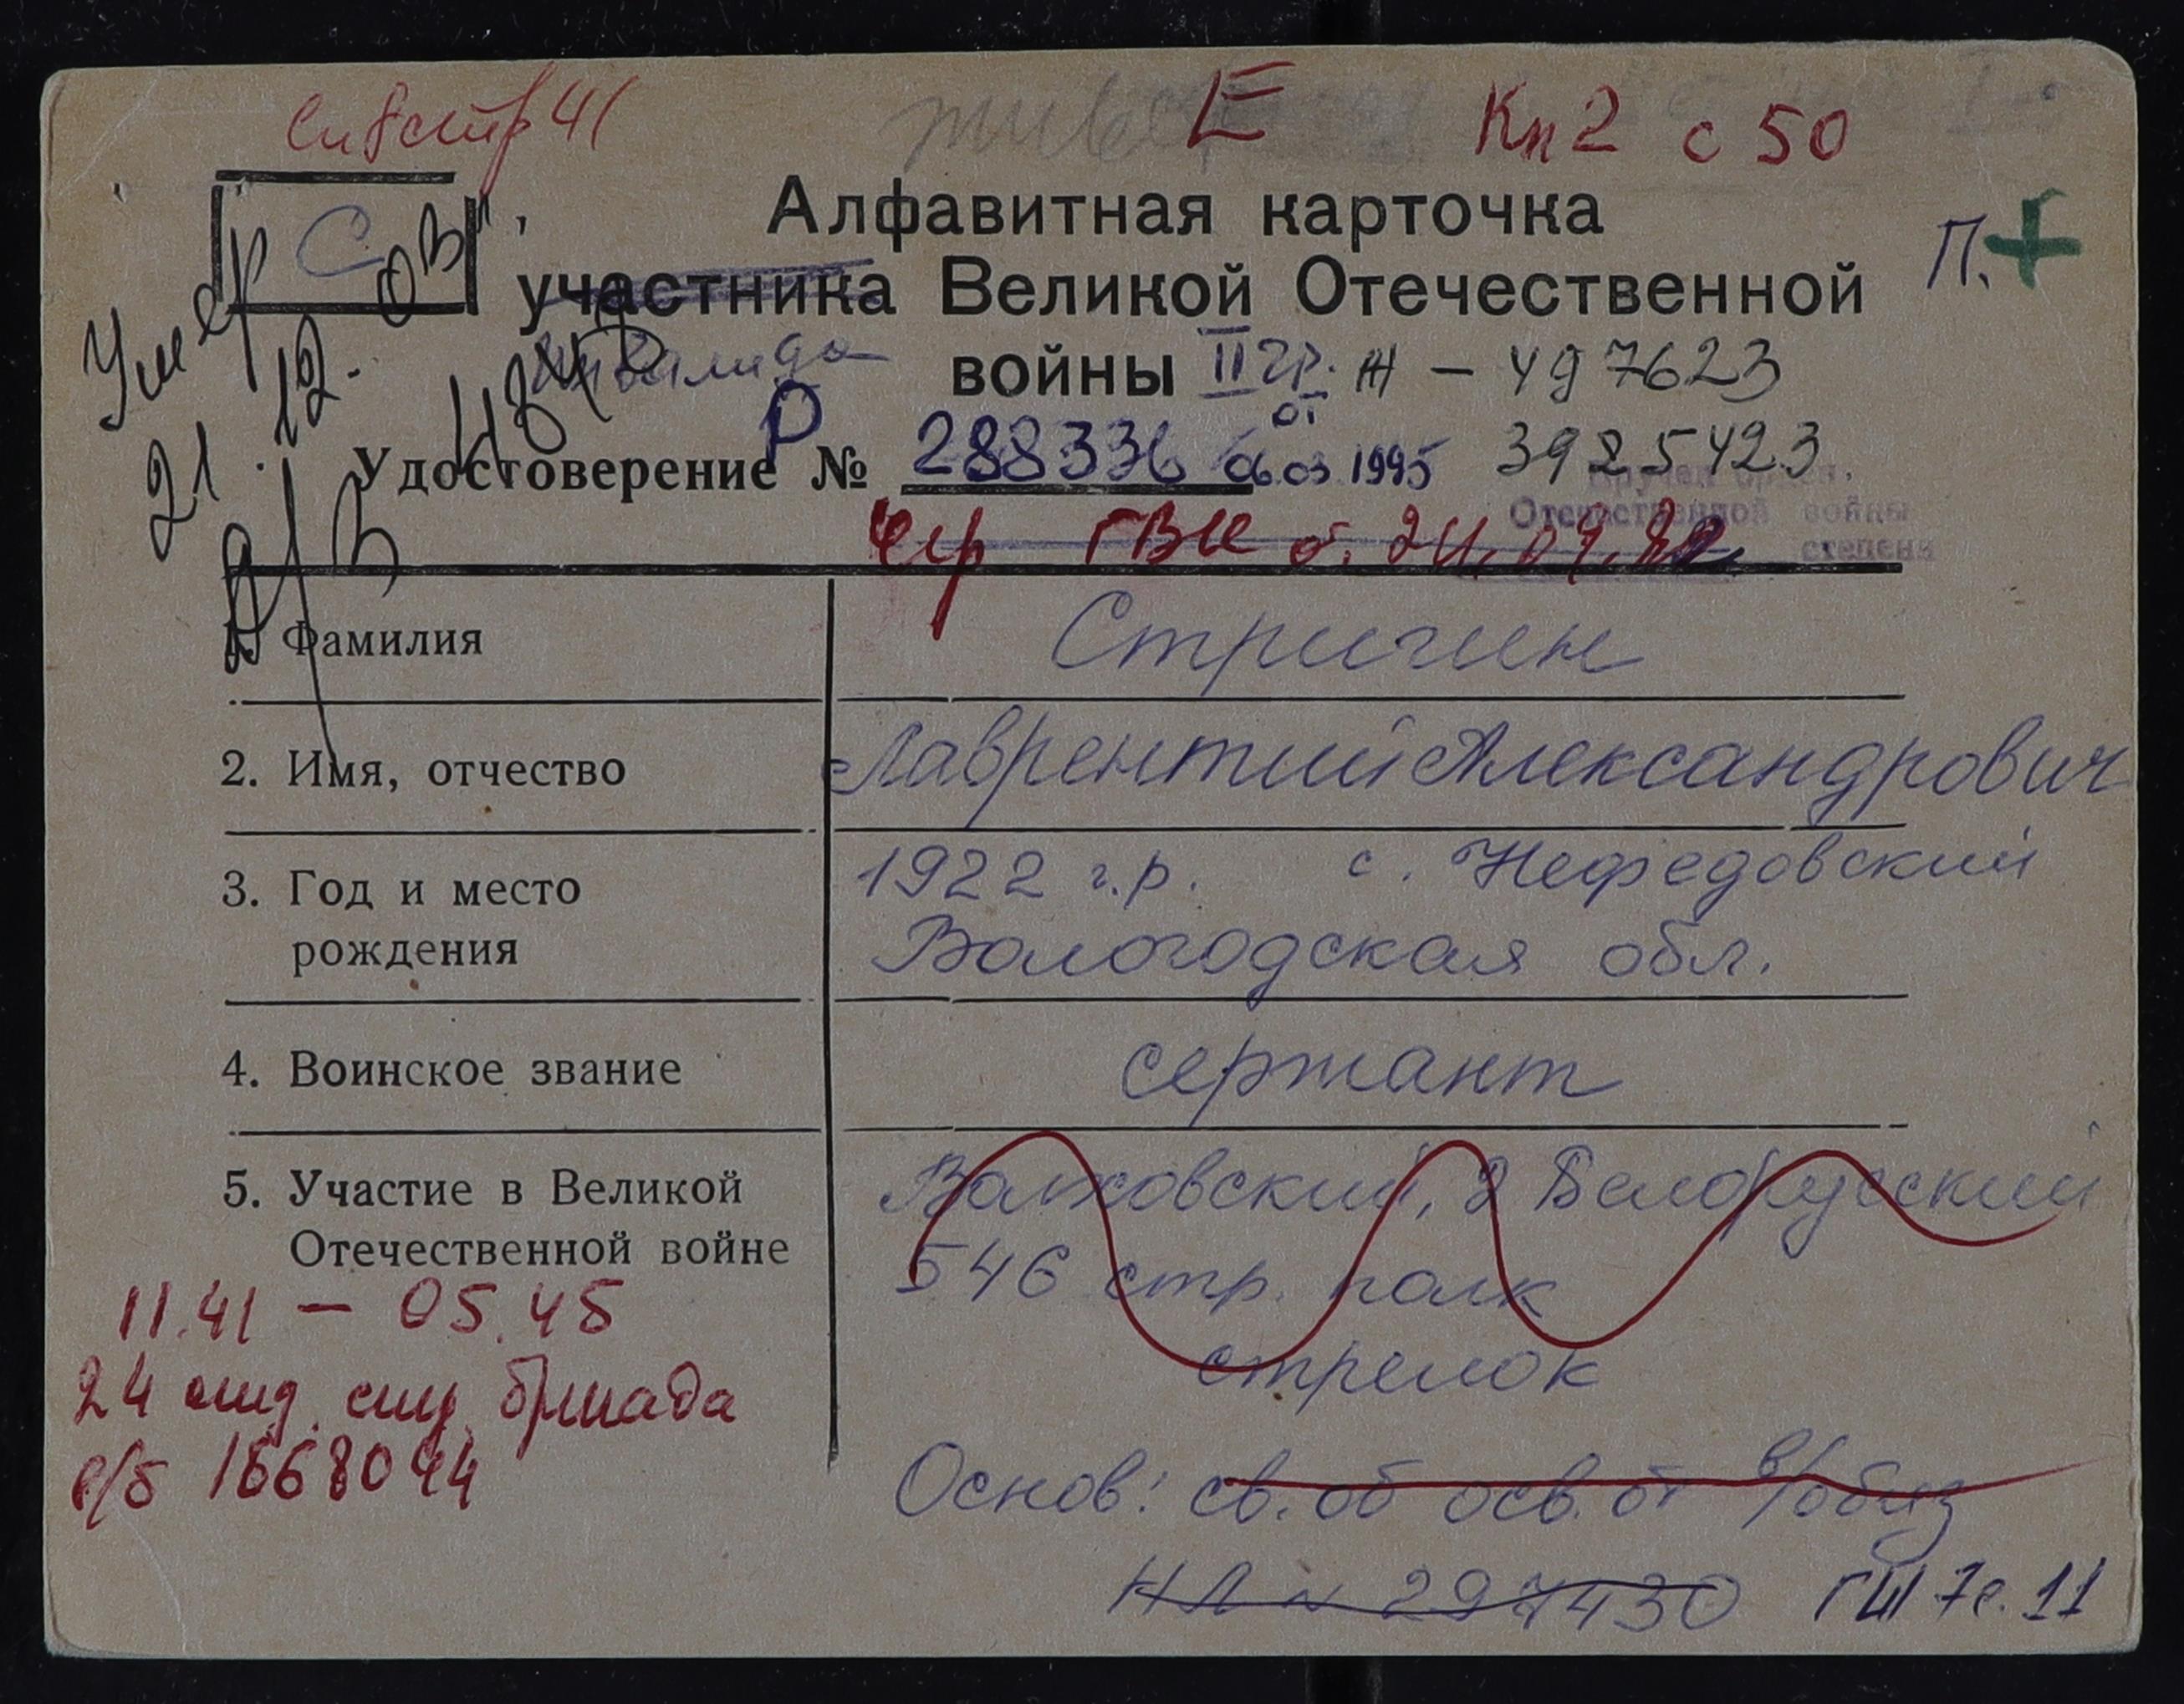 Кн 2 с 50
Е
С
Алфавитная карточка
П. +
участника Великой Отечественной
инвалида
войны II гр. Ж - 497623
Умер
21.12.
Удостоверение Р № 288336 от 06.03 1995 3925423
Вручен орден
Отечественной войны
степени
ГВК
1. Фамилия Стригин
2. Имя, отчество Лаврентий Александрович
3. Год и место 1922 г.р. с. Нефедовский
рождения Вологодская обл.
4. Воинское звание сержант
5. Участие в Великой Волховский, 2 Белорусский
Отечественной войне 546 стр. полк
стрелок
11.41 - 05.45
24 бригада
в/б 1668044
Основ: св. об осв. от в/обяз
НЛ № 297430 ГШ 7с. 11